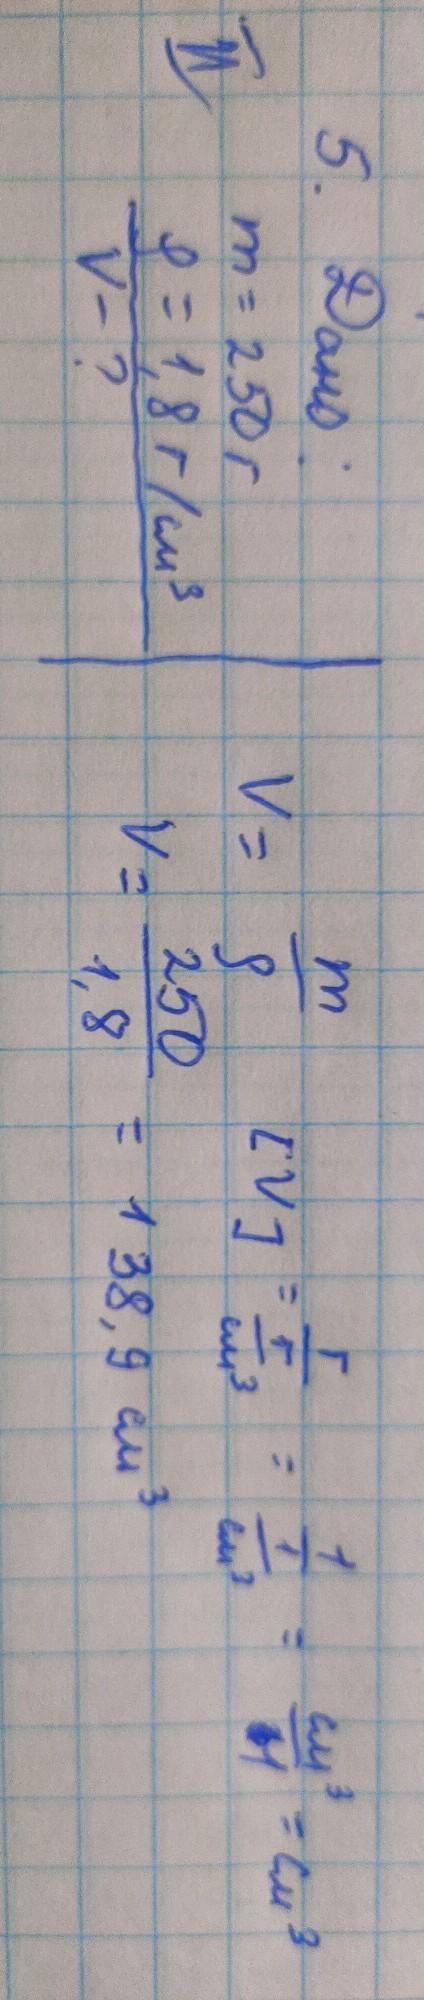 II
5. Дано:
m = 250 г
ρ = 1,8 г/см³
V - ?
V = m/ρ [V] = г/(г/см³) = 1/(1/см³) = см³/1 = см³
V = 250/1,8 = 138,9 см³